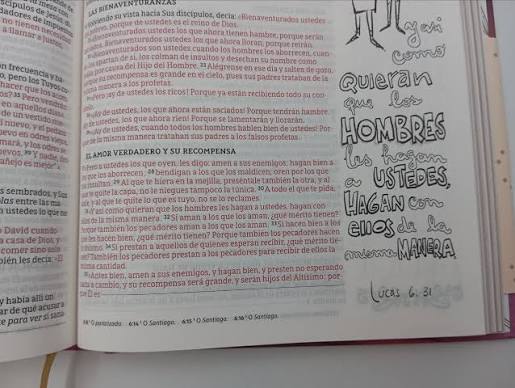 dadores de
scípulos de Jesús:
dores de impuestos
no tienen necesi
a llamar a justos,
n frecuencia y ha-
o, pero los Tuyos co-
hacer que los acom-
os? 35 Pero vendrán
en aquellos días».
de un vestido nuevo
l nuevo, y el pedazo
nuevo en odres viejos,
mará, y los odres se
uevos. 39 Y nadie, des-
añejo es mejor"».
sembrados, y Sus
olas entre las ma-
ustedes lo que no
o David cuando
casa de Dios, y
comer sino solo
bién les decía: «El
y había allí un
ar de qué acusar a
te para ver si sana-
LAS BIENAVENTURANZAS
Volviendo su vista hacia Sus discípulos, decía: «Bienaventurados ustedes
los pobres, porque de ustedes es el reino de Dios.
Bienaventurados ustedes los que ahora tienen hambre, porque serán
saciados. Bienaventurados ustedes los que ahora lloran, porque reirán.
Bienaventurados son ustedes cuando los hombres los aborrecen, cuan-
do los apartan de sí, los colman de insultos y desechan su nombre como
malo, por causa del Hijo del Hombre. 23 Alégrense en ese día y salten de gozo,
porque su recompensa es grande en el cielo, pues sus padres trataban de la
misma manera a los profetas.
Pero ¡ay de ustedes los ricos! Porque ya están recibiendo todo su con-
¡Ay de ustedes, los que ahora están saciados! Porque tendrán hambre.
¡Ay de ustedes, los que ahora ríen! Porque se lamentarán y llorarán.
¡Ay de ustedes, cuando todos los hombres hablen bien de ustedes! Por-
que de la misma manera trataban sus padres a los falsos profetas.
EL AMOR VERDADERO Y SU RECOMPENSA
Pero a ustedes los que oyen, les digo: amen a sus enemigos; hagan bien a
los que los aborrecen; 28 bendigan a los que los maldicen; oren por los que
los insultan. 29 Al que te hiera en la mejilla, preséntale también la otra; y al
que te quite la capa, no le niegues tampoco la túnica. 30 A todo el que te pida,
dale, y al que te quite lo que es tuyo, no se lo reclames.
31 Y así como quieran que los hombres les hagan a ustedes, hagan con
ellos de la misma manera. 32 Si aman a los que los aman, ¿qué mérito tienen?
Porque también los pecadores aman a los que los aman. 33 Si hacen bien a los
que les hacen bien, ¿qué mérito tienen? Porque también los pecadores hacen
lo mismo. 34 Si prestan a aquellos de quienes esperan recibir, ¿qué mérito tie-
nen? También los pecadores prestan a los pecadores para recibir de ellos la
misma cantidad.
35 Antes bien, amen a sus enemigos, y hagan bien, y presten no esperando
nada a cambio, y su recompensa será grande, y serán hijos del Altísimo; por-
que Él es
O Santiago. 6:15 O Santiago. 6:16 O Santiago.
y así
como
QUIERAN
que los
HOMBRES
les hagan
a USTEDES,
HAGAN con
ellos de la
misma MANERA.
Lucas 6:31